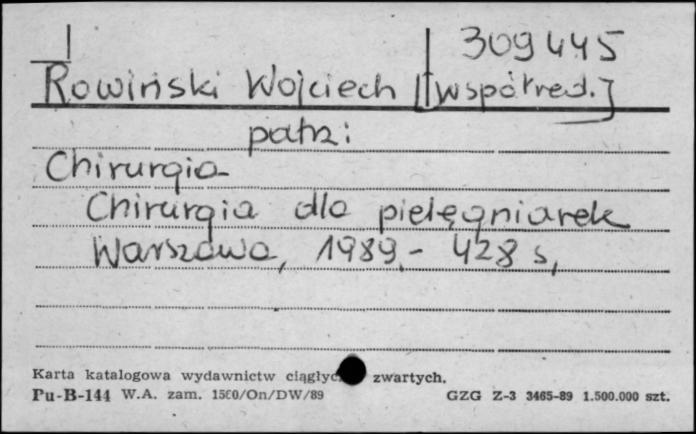 309445
Rowiński Wojciech [współred.]
patrz:
Chirurgia
Chirurgia dla pielęgniarek
Warszawa, 1989.- 428 s,
Karta katalogowa wydawnictw zwartych.
Pu-B-144 W.A. zam. 1560/On/DW/89 GZG Z-3 3465-89 1.500.000 szt.